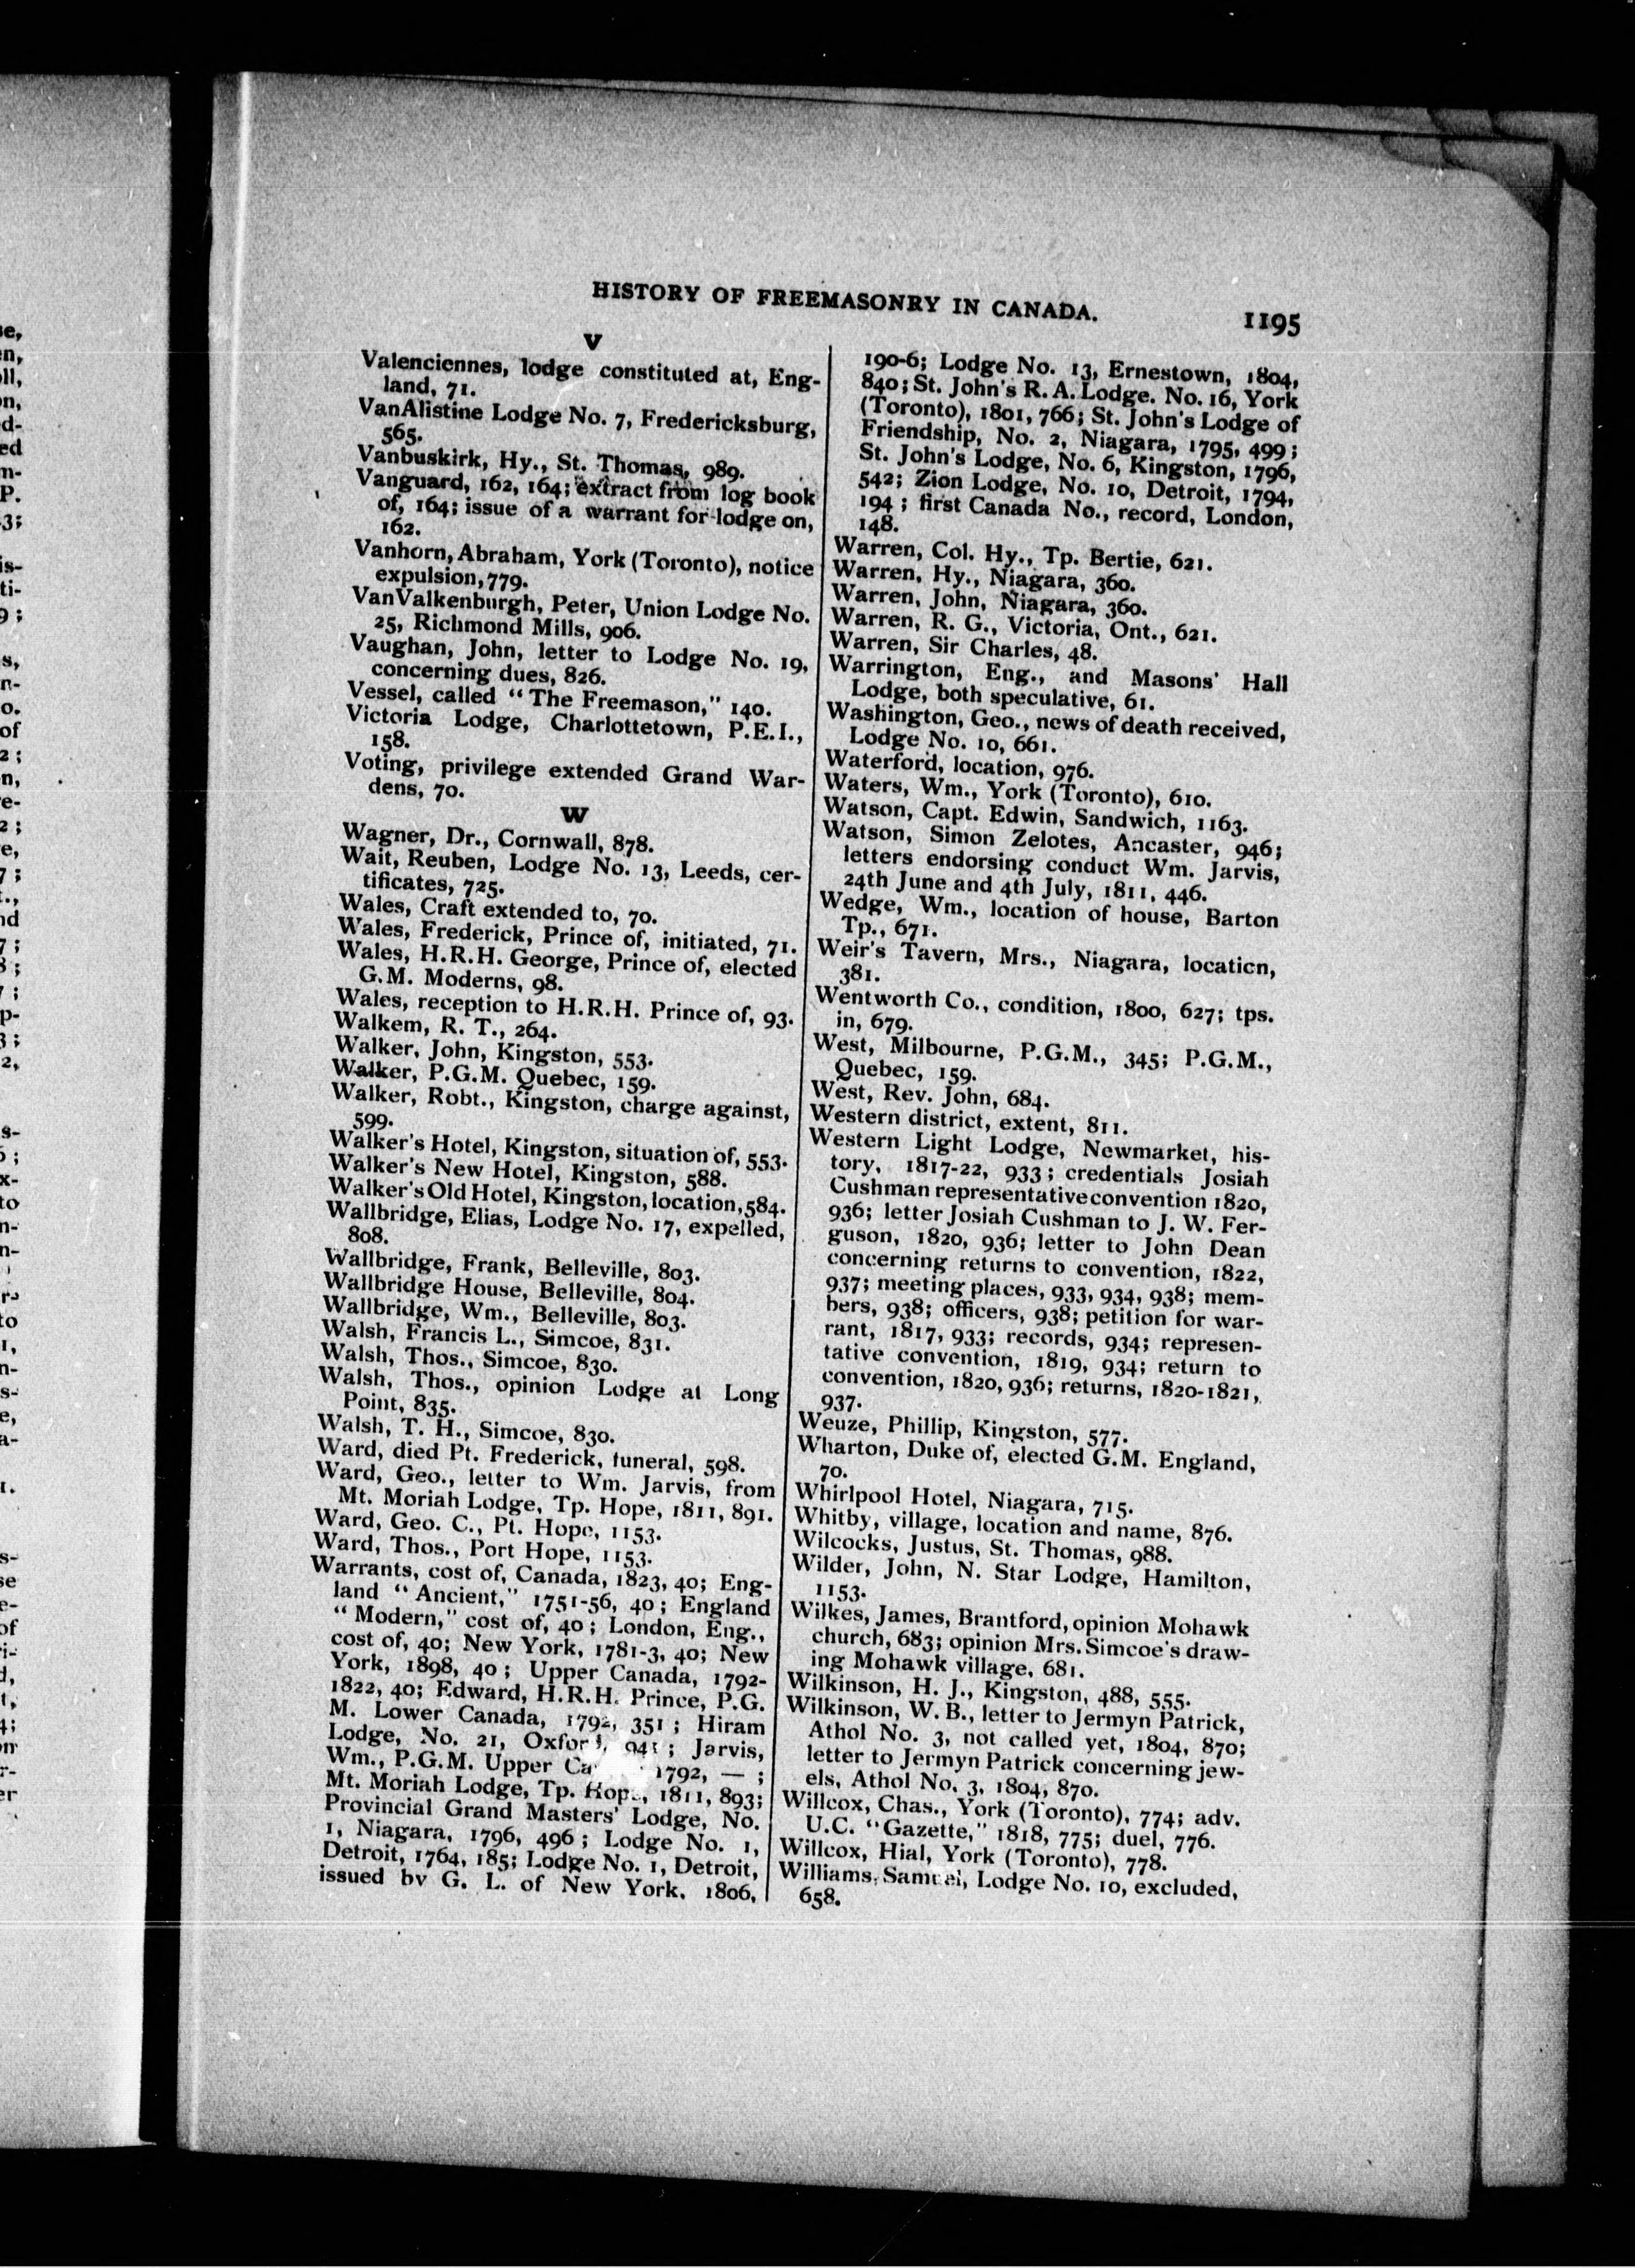 HISTORY OF FREEMASONRY IN CANADA.
1195
V
Valenciennes, lodge constituted at, Eng-
land, 71.
VanAlistine Lodge No. 7, Fredericksburg,
565.
Vanbuskirk, Hy., St. Thomas, 989.
Vanguard, 162, 164; extract from log book
of, 164; issue of a warrant for lodge on,
162.
Vanhorn, Abraham, York (Toronto), notice
expulsion, 779.
VanValkenburgh, Peter, Union Lodge No.
25, Richmond Mills, 906.
Vaughan, John, letter to Lodge No. 19,
concerning dues, 826.
Vessel, called "The Freemason," 140.
Victoria Lodge, Charlottetown, P.E.I.,
158.
Voting, privilege extended Grand War-
dens, 70.
W
Wagner, Dr., Cornwall, 878.
Wait, Reuben, Lodge No. 13, Leeds, cer-
tificates, 725.
Wales, Craft extended to, 70.
Wales, Frederick, Prince of, initiated, 71.
Wales, H.R.H. George, Prince of, elected
G.M. Moderns, 98.
Wales, reception to H.R.H. Prince of, 93.
Walkem, R. T., 264.
Walker, John, Kingston, 553.
Walker, P.G.M. Quebec, 159.
Walker, Robt., Kingston, charge against,
599.
Walker's Hotel, Kingston, situation of, 553.
Walker's New Hotel, Kingston, 588.
Walker's Old Hotel, Kingston, location, 584.
Wallbridge, Elias, Lodge No. 17, expelled,
808.
Wallbridge, Frank, Belleville, 803.
Wallbridge House, Belleville, 804.
Wallbridge, Wm., Belleville, 803.
Walsh, Francis L., Simcoe, 831.
Walsh, Thos., Simcoe, 830.
Walsh, Thos., opinion Lodge at Long
Point, 835.
Walsh, T. H., Simcoe, 830.
Ward, died Pt. Frederick, funeral, 598.
Ward, Geo., letter to Wm. Jarvis, from
Mt. Moriah Lodge, Tp. Hope, 1811, 891.
Ward, Geo. C., Pt. Hope, 1153.
Ward, Thos., Port Hope, 1153.
Warrants, cost of, Canada, 1823, 40; Eng-
land "Ancient," 1751-56, 40; England
"Modern," cost of, 40; London, Eng.,
cost of, 40; New York, 1781-3, 40; New
York, 1898, 40; Upper Canada, 1792-
1822, 40; Edward, H.R.H. Prince, P.G.
M. Lower Canada, 1792, 351; Hiram
Lodge, No. 21, Oxford, 941; Jarvis,
Wm., P.G.M. Upper 1792, — ;
Mt. Moriah Lodge, Tp. Hope, 1811, 893;
Provincial Grand Masters' Lodge, No.
1, Niagara, 1796, 496; Lodge No. 1,
Detroit, 1764, 185; Lodge No. 1, Detroit,
issued by G. L. of New York, 1806,
190-6; Lodge No. 13, Ernestown, 1804,
840; St. John's R. A. Lodge. No. 16, York
(Toronto), 1801, 766; St. John's Lodge of
Friendship, No. 2, Niagara, 1795, 499;
St. John's Lodge, No. 6, Kingston, 1796,
542; Zion Lodge, No. 10, Detroit, 1794,
194; first Canada No., record, London,
148.
Warren, Col. Hy., Tp. Bertie, 621.
Warren, Hy., Niagara, 360.
Warren, John, Niagara, 360.
Warren, R. G., Victoria, Ont., 621.
Warren, Sir Charles, 48.
Warrington, Eng., and Masons' Hall
Lodge, both speculative, 61.
Washington, Geo., news of death received,
Lodge No. 10, 661.
Waterford, location, 976.
Waters, Wm., York (Toronto), 610.
Watson, Capt. Edwin, Sandwich, 1163.
Watson, Simon Zelotes, Ancaster, 946;
letters endorsing conduct Wm. Jarvis,
24th June and 4th July, 1811, 446.
Wedge, Wm., location of house, Barton
Tp., 671.
Weir's Tavern, Mrs., Niagara, location,
381.
Wentworth Co., condition, 1800, 627; tps.
in, 679.
West, Milbourne, P.G.M., 345; P.G.M.,
Quebec, 159.
West, Rev. John, 684.
Western district, extent, 811.
Western Light Lodge, Newmarket, his-
tory, 1817-22, 933; credentials Josiah
Cushman representative convention 1820,
936; letter Josiah Cushman to J. W. Fer-
guson, 1820, 936; letter to John Dean
concerning returns to convention, 1822,
937; meeting places, 933, 934, 938; mem-
bers, 938; officers, 938; petition for war-
rant, 1817, 933; records, 934; represen-
tative convention, 1819, 934; return to
convention, 1820, 936; returns, 1820-1821,
937.
Weuze, Phillip, Kingston, 577.
Wharton, Duke of, elected G.M. England,
70.
Whirlpool Hotel, Niagara, 715.
Whitby, village, location and name, 876.
Wilcocks, Justus, St. Thomas, 988.
Wilder, John, N. Star Lodge, Hamilton,
1153.
Wilkes, James, Brantford, opinion Mohawk
church, 683; opinion Mrs. Simcoe's draw-
ing Mohawk village, 681.
Wilkinson, H. J., Kingston, 488, 555.
Wilkinson, W. B., letter to Jermyn Patrick,
Athol No. 3, not called yet, 1804, 870;
letter to Jermyn Patrick concerning jew-
els, Athol No. 3, 1804, 870.
Willcox, Chas., York (Toronto), 774; adv.
U.C. "Gazette," 1818, 775; duel, 776.
Willcox, Hial, York (Toronto), 778.
Williams, Samuel, Lodge No. 10, excluded,
658.